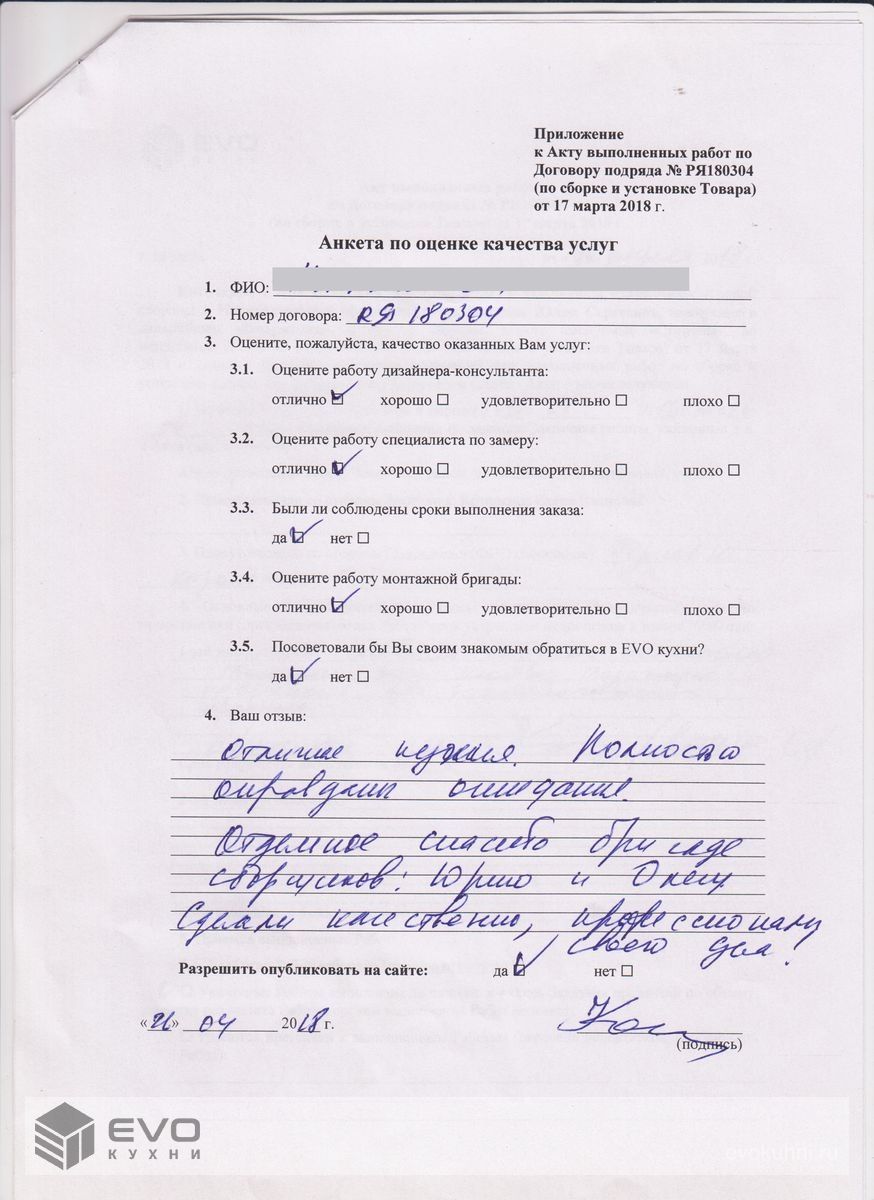 Приложение
к Акту выполненных работ по
Договору подряда № РЯ180304
(по сборке и установке Товара)
от 17 марта 2018 г.
Анкета по оценке качества услуг
1. ФИО:
2. Номер договора: РЯ 180304
3. Оцените, пожалуйста, качество оказанных Вам услуг:
3.1. Оцените работу дизайнера-консультанта:
отлично ☑ хорошо ☐ удовлетворительно ☐ плохо ☐
3.2. Оцените работу специалиста по замеру:
отлично ☑ хорошо ☐ удовлетворительно ☐ плохо ☐
3.3. Были ли соблюдены сроки выполнения заказа:
да ☑ нет ☐
3.4. Оцените работу монтажной бригады:
отлично ☑ хорошо ☐ удовлетворительно ☐ плохо ☐
3.5. Посоветовали бы Вы своим знакомым обратиться в EVO кухни?
да ☑ нет ☐
4. Ваш отзыв:
Отличные Полностью
оправданы ожидания.
Отдельное спасибо бригаде
сборщиков: Юрию и Олегу
Сделали качественно, профессионалы
своего дела!
Разрешить опубликовать на сайте: да ☑ нет ☐
« » 04 2018 г.
(подпись)
EVO
КУХНИ
evokuhni.ru